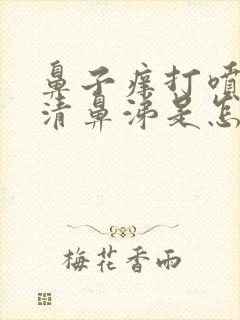 鼻子痒打喷
清鼻涕是怎
梅花香雨